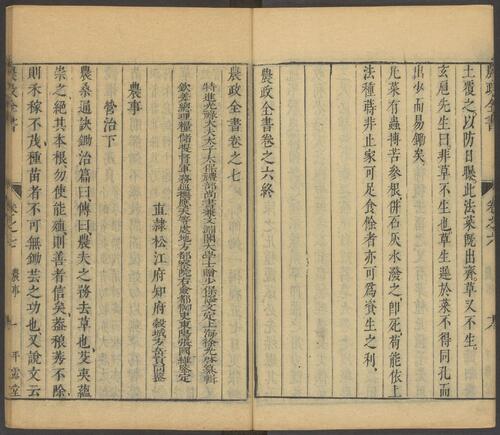 土覆之以防日曝此法菜既出齊草又不生
玄扈先生曰非草不生也草生遲於菜不得同孔而
出少而易鋤矣
凡菜有蟲搗苦參根併石灰水潑之即死苟能依上
法種蒔非止家可足食餘者亦可為資生之利
農政全書卷之六終
農政全書卷之七
特進光祿大夫太子太保禮部尚書兼文淵閣大學士贈少保謚文定上海徐光啓纂輯
欽差總理糧儲提督軍務巡撫應天等處地方都察院右僉都御史東陽張國維鑒定
直隸松江府知府穀城方岳貢同鑒
農事
營治下
農桑通訣鋤治篇曰傳曰農夫之務去草也芟夷蘊
崇之絕其本根勿使能殖則善者信矣蓋稂莠不除
則禾稼不茂種苗者不可無鋤芸之功也又說文云
農政全書 卷之七 農事 一 平露堂